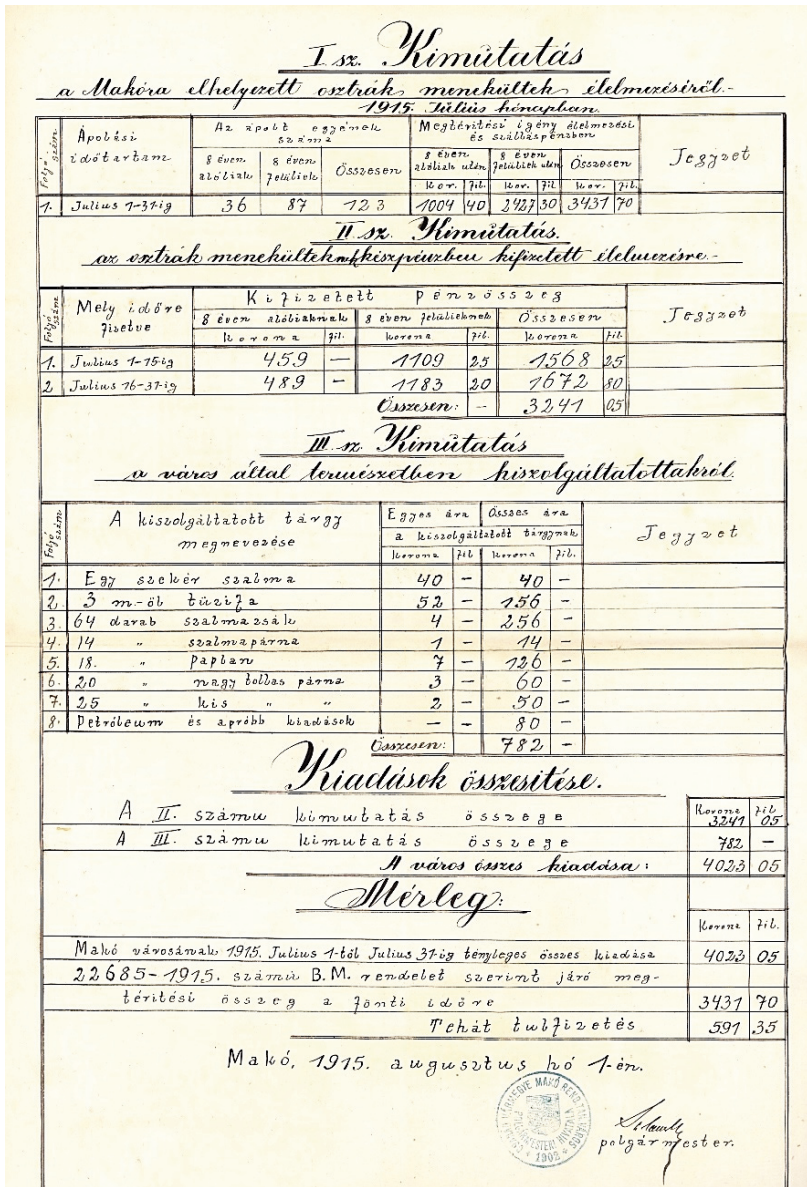 I. sz. Kiműtatás
a Makóra elhelyezett osztrák menekültek élelmezéséről.-
1915. Július hónapban.
Folyó szám | Ápolási időtartam | Az ápolt egyének száma | Megtérítési igény élelmezési és szálláspénzben | Jegyzet
8 éven alóliak | 8 éven felüliek | Összesen | 8 éven alóliak után | 8 éven felüliek után | Összesen
Kor. | fil. | Kor. | fil | Kor. | fil.
1. | Julius 1-31-ig | 36 | 87 | 123 | 1004 | 40 | 2427 | 30 | 3431 | 70
II. sz. Kiműtatás.
az osztrák menekülteknek készpénzben kifizetett élelmezésre.-
Folyó szám | Mely időre fizetve | Kifizetett pénzösszeg | Jegyzet
8 éven alóliaknak | 8 éven felülieknek | Összesen
Korona | fil. | Korona | fil. | Korona | fil.
1. | Julius 1-15-ig | 459 | — | 1109 | 25 | 1568 | 25
2 | Julius 16-31-ig | 489 | - | 1183 | 20 | 1672 | 80
Összesen: | - | 3241 | 05
III. sz. Kiműtatás
a város által természetben kiszolgáltatottakról.
Folyó szám | A kiszolgáltatott tárgy megnevezése | Egyes ára | Összes ára | Jegyzet
a kiszolgáltatott tárgynak
Korona | fil | Korona | fil.
1. | Egy szekér szalma | 40 | — | 40 | -
2. | 3 m.-öl tüzifa | 52 | - | 156 | -
3. | 64 darab szalmazsák | 4 | - | 256 | -
4. | 14 " szalmapárna | 1 | - | 14 | -
5. | 18. " Paplan | 7 | - | 126 | -
6. | 20 " nagy tollas párna | 3 | - | 60 | -
7. | 25 " kis " " | 2 | - | 50 | -
8. | Petróleum és apróbb kiadások | — | - | 80 | -
Összesen: | 782 | -
Kiadások összesitése.
Korona | fil
A II. számu kimutatás összege | 3241 | 05
A III. számu kimutatás összege | 782 | —
A város összes kiadása: | 4023 | 05
Mérleg:
Korona | fil.
Makó városának 1915. Julius 1-től Julius 31-ig tényleges összes kiadása | 4023 | 05
22685-1915. számu B.M. rendelet szerint járó meg-
térítési összeg a fönti időre | 3431 | 70
Tehát tulfizetés | 591 | 35
Makó, 1915. augusztus hó 1-én.
CSANÁD VÁRMEGYE MAKÓ REND. TAN. VÁROS
POLGÁRMESTERI HIVATALA
1902
polgármester.